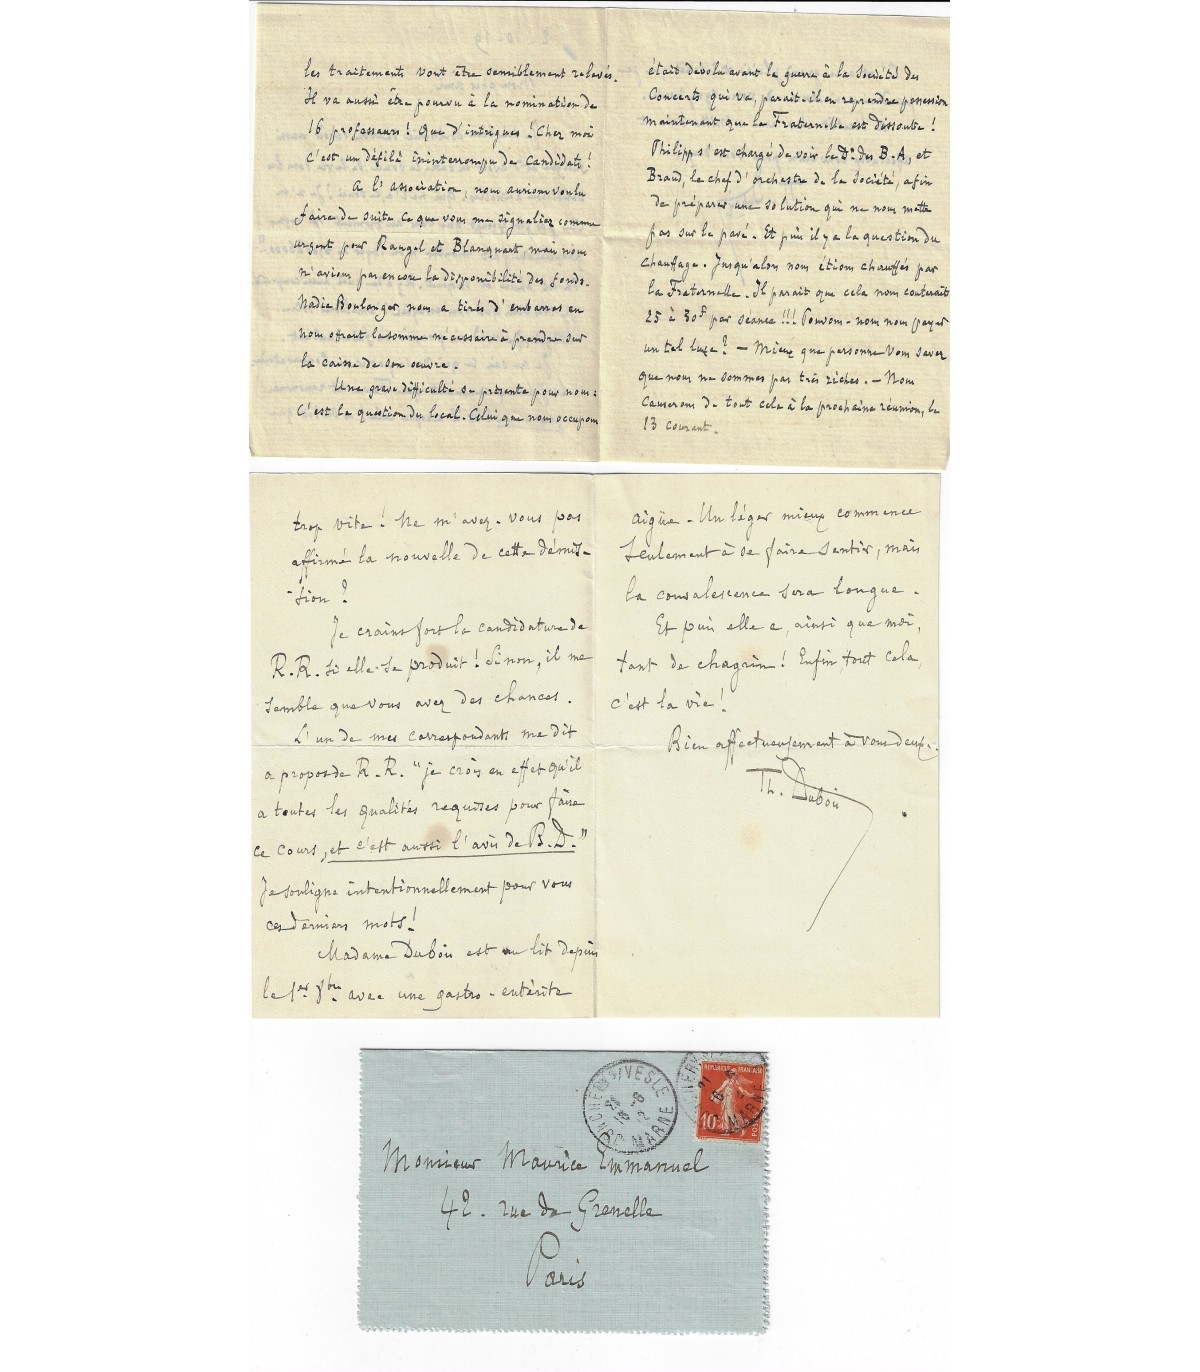 les traitements vont être sensiblement relevés.
Il va aussi être pourvu à la nomination de
16 professeurs ! Que d'intrigues ! Chez moi
c'est un défilé ininterrompu de candidats !
A l'association, nous aurions voulu
faire de suite ce que vous me signaliez comme
urgent pour Rangel et Blanquart mais nous
n'avions pas encore la disponibilité des fonds.
Nadia Boulanger nous a tirés d'embarras en
nous offrant la somme nécessaire à prendre sur
la caisse de son oeuvre.
Une grave difficulté se présente pour nous :
C'est la question du local. Celui que nous occupons
était dévolu avant la guerre à la Société des
Concerts qui va, parait-il en reprendre possession
maintenant que la Fraternelle est dissoute !
Philipp s'est chargé de voir le Dr. des B-A, et
Braud, le chef d'orchestre de la Société, afin
de préparer une solution qui ne nous mette
pas sur le pavé. Et puis il y a la question du
chauffage. Jusqu'alors nous étions chauffés par
la Fraternelle. Il parait que cela nous couterait
25 à 30f par séance !!! Pouvons-nous nous payer
un tel luxe ? — Mieux que personne vous savez
que nous ne sommes pas très riches. — Nous
causerons de tout cela à la prochaine réunion, le
13 courant.
trop vite ! Ne m'avez-vous pas
affirmé la nouvelle de cette démis-
-sion ?
Je crains fort la candidature de
R.R. si elle se produit ! Sinon, il me
semble que vous avez des chances.
L'un de mes correspondants me dit
a propos de R.R. "je crois en effet qu'il
a toutes les qualités requises pour faire
ce cours, et c'est aussi l'avis de B.D."
Je souligne intentionnellement pour vous
ces derniers mots !
Madame Dubois est au lit depuis
le 1er 8bre avec une gastro-entérite
aigüe. Un léger mieux commence
seulement à se faire sentir, mais
la convalescence sera longue.
Et puis elle a, ainsi que moi,
tant de chagrin ! Enfin, tout cela,
c'est la vie !
Bien affectueusement à vous deux.
Th. Dubois
JONCHERY-S/VESLE
MARNE
REPUBLIQUE FRANÇAISE
10
POSTES
MARNE
Monsieur Maurice Emmanuel
42. rue de Grenelle
Paris